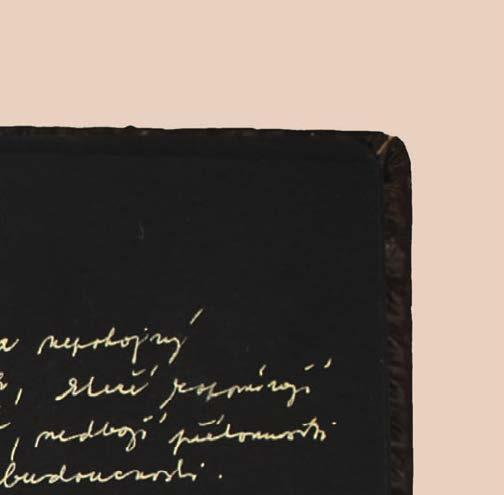 a nepokojný
, kteří zapomínají
, nedbají přítomnosti
budoucnosti.